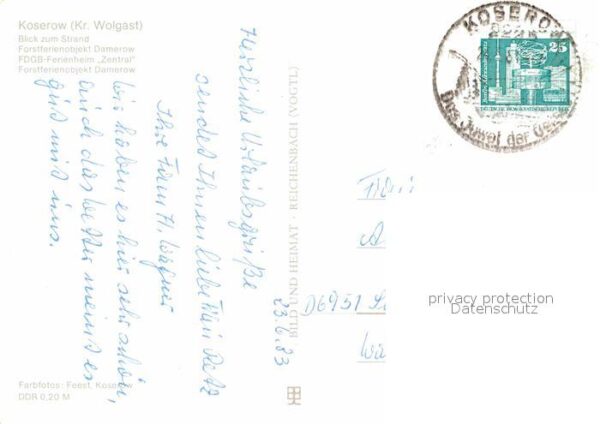 Koserow (Kr. Wolgast)
Blick zum Strand
Forstferienobjekt Damerow
FDGB-Ferienheim „Zentral"
Forstferienobjekt Damerow
Herzliche Urlaubsgrüße
sendet Ihnen liebe Frau
Ihre Fam. H. Wagner
wir haben es hier sehr schön,
auch das Wetter meint es
gut mit uns.
23.6.83
BILD UND HEIMAT · REICHENBACH (VOGTL)
Farbfotos: Feest, Koserow
DDR 0,20 M
KOSEROW
2225
Das Juwel der
25
DEUTSCHE DEMOKRATISCHE REPUBLIK
D6951
privacy protection
Datenschutz